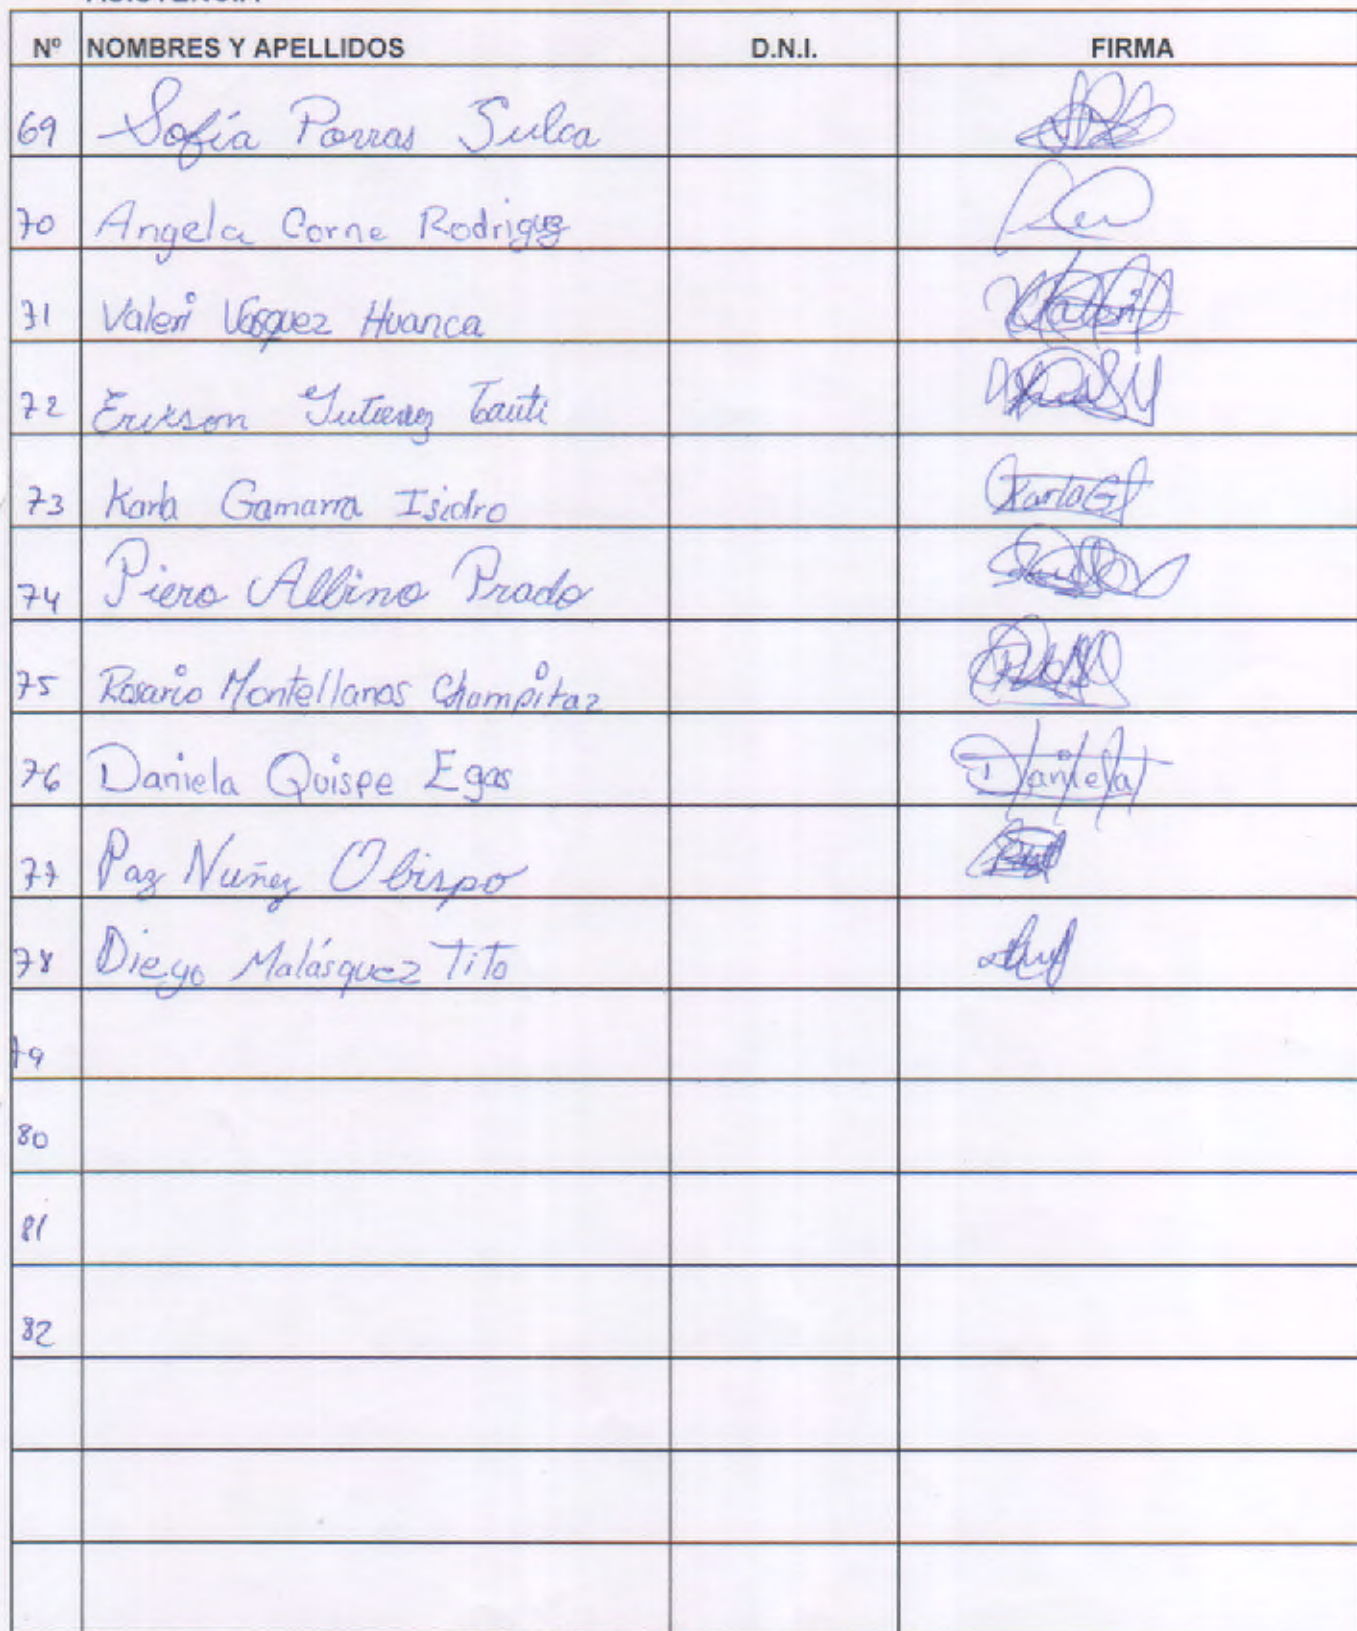 Nº NOMBRES Y APELLIDOS D.N.I. FIRMA
69 Sofía Porras Sulca
70 Angela Corne Rodriguez
71 Valeri Vasquez Huanca
72 Erikson Gutierrez Tauti
73 Karla Gamarra Isidro KarlaGI
74 Piero Albino Prado
75 Rosario Montellanos Champitaz
76 Daniela Quispe Egas Daniela
77 Paz Nuñez Obispo
78 Diego Malásquez Tito
79
80
81
82